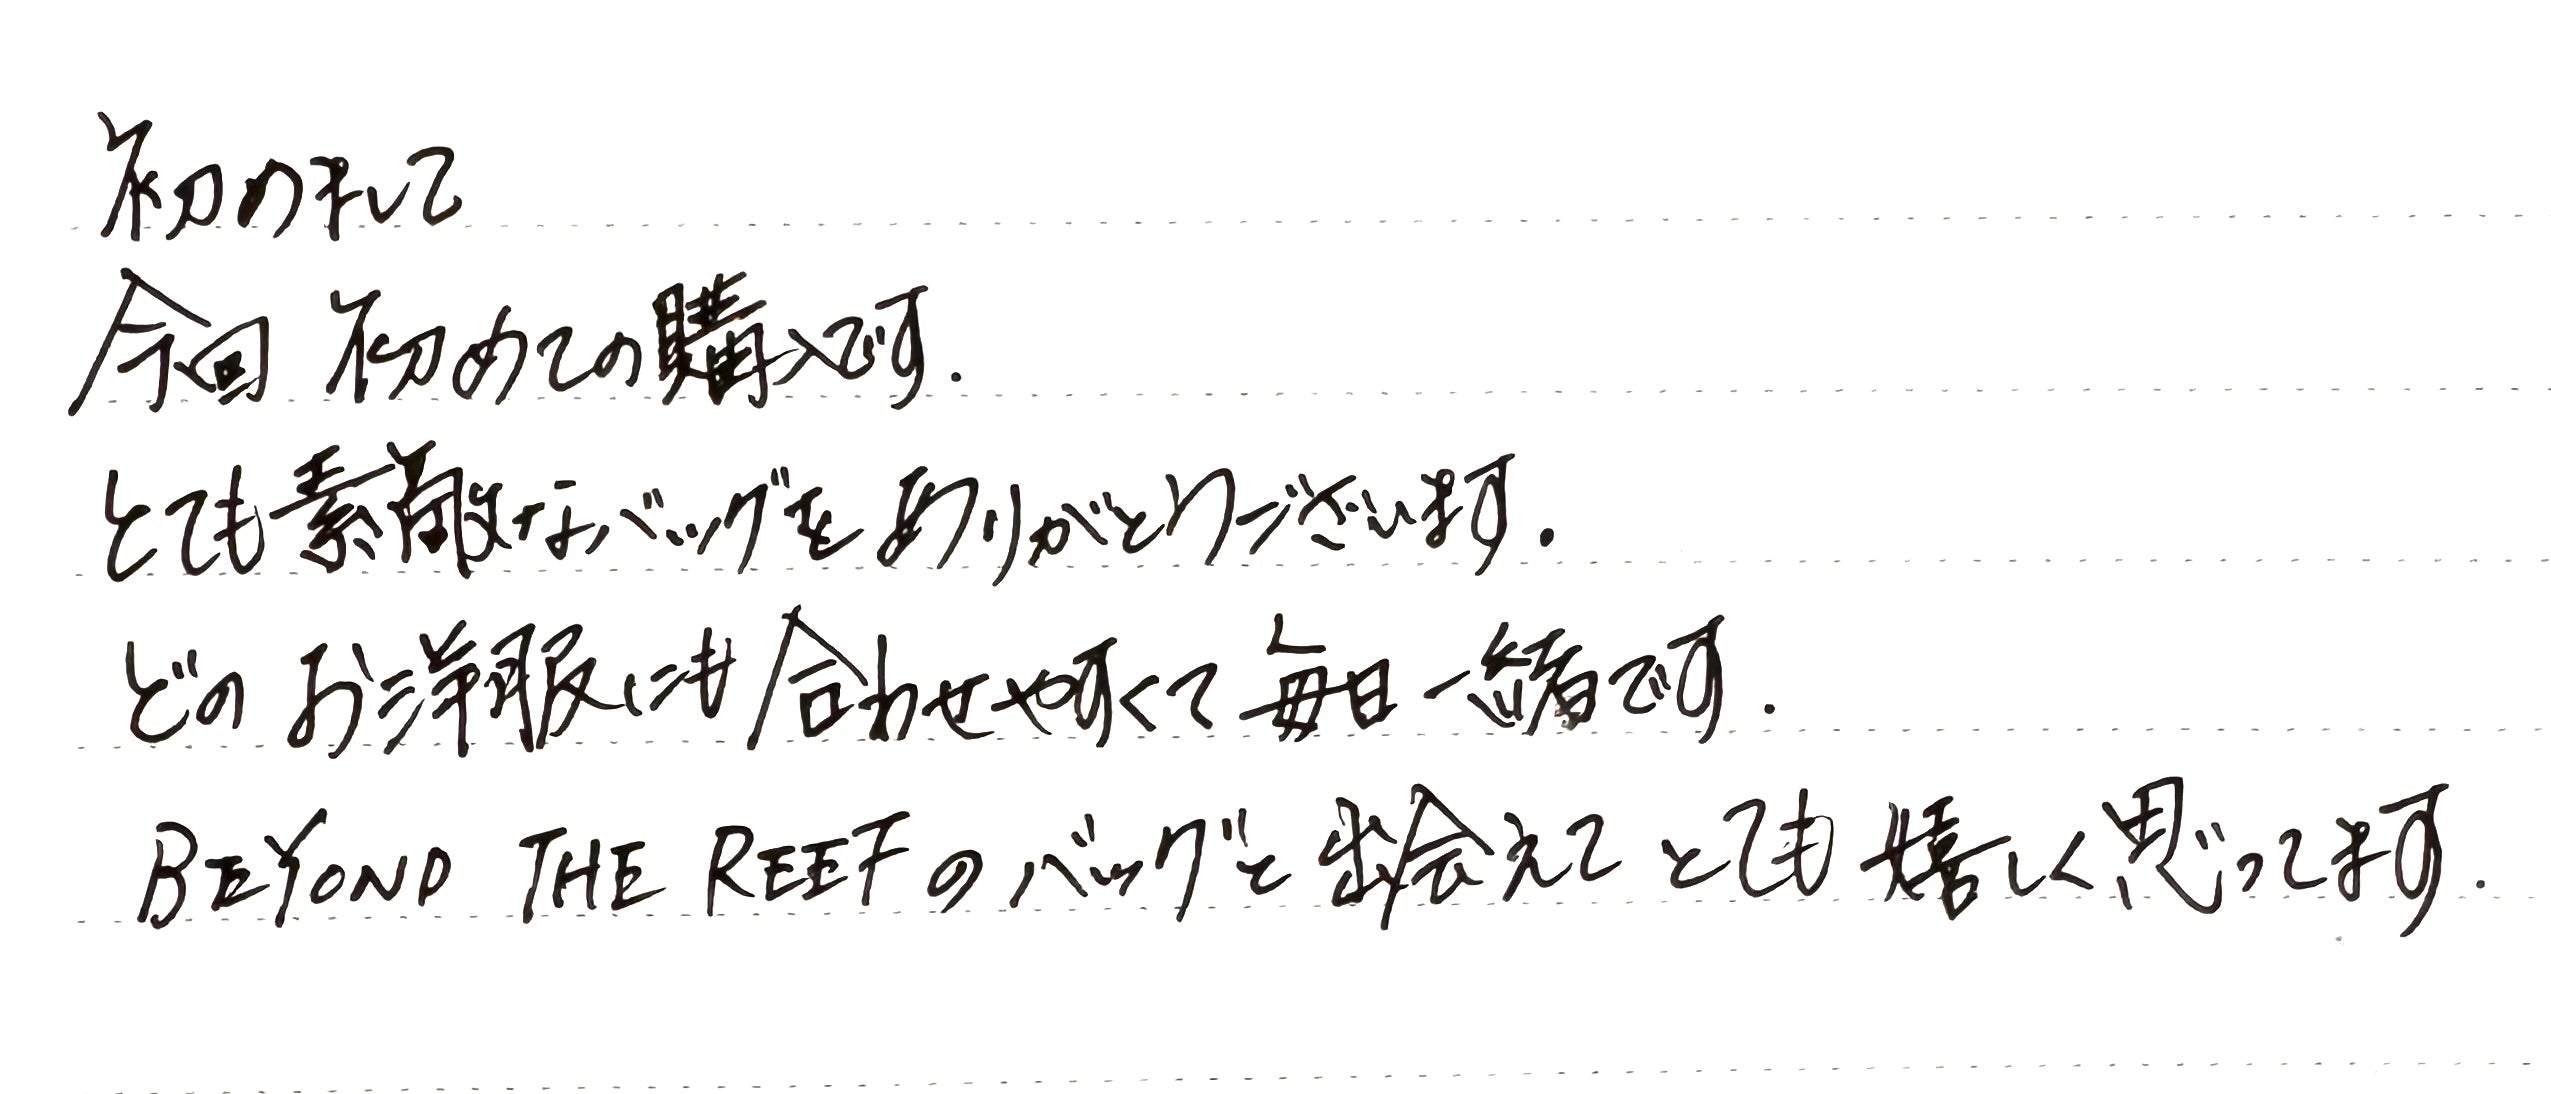 初めまして
今回 初めての購入です.
とても素敵なバッグをありがとうございます.
どのお洋服にも合わせやすくて毎日一緒です.
BEYOND THE REEFのバッグと出会えてとても嬉しく思ってます.